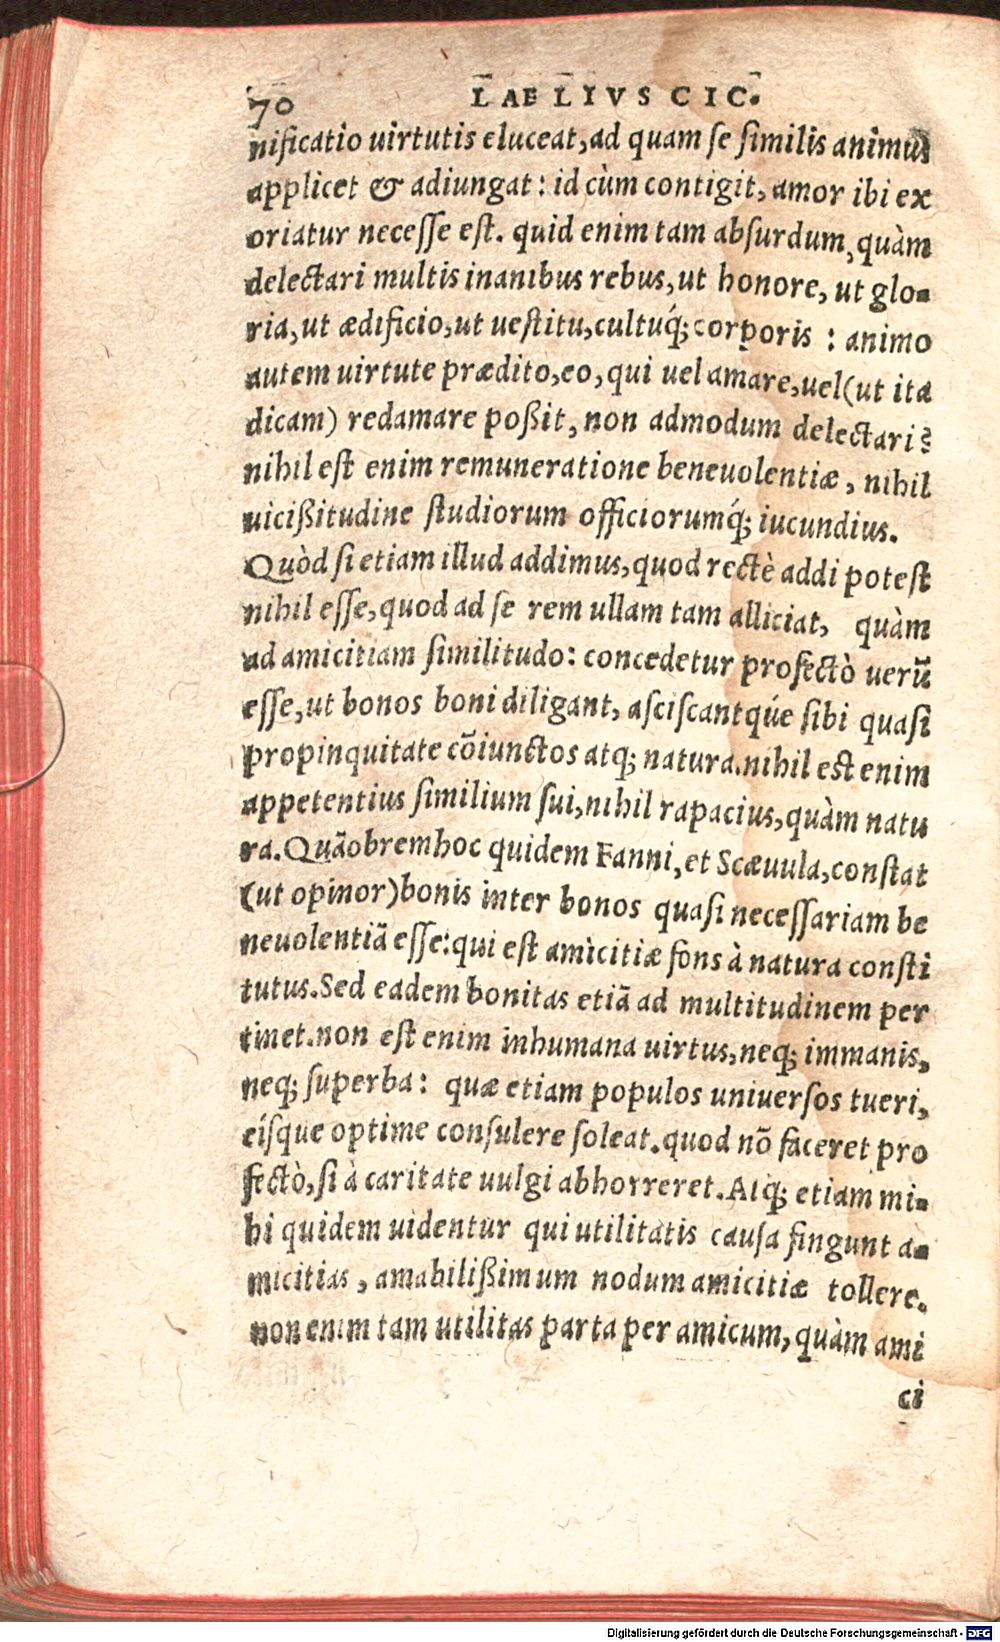 70 LAELIVS CIC.
nificatio uirtutis eluceat, ad quam se similis animus
applicet & adiungat: id cùm contigit, amor ibi ex
oriatur necesse est. quid enim tam absurdum, quàm
delectari multis inanibus rebus, ut honore, ut glo-
ria, ut ædificio, ut uestitu, cultuq́; corporis: animo
autem uirtute prædito, eo, qui uel amare, uel (ut ita
dicam) redamare poßit, non admodum delectari?
nihil est enim remuneratione beneuolentiæ, nihil
uicißitudine studiorum officiorumq́; iucundius.
Quòd si etiam illud addimus, quod rectè addi potest
nihil esse, quod ad se rem ullam tam alliciat, quàm
ad amicitiam similitudo: concedetur profectò uerū
esse, ut bonos boni diligant, asciscantq́ue sibi quasi
propinquitate cōiunctos atq; natura. nihil est enim
appetentius similium sui, nihil rapacius, quàm natu
ra. Quāobrem hoc quidem Fanni, et Scæuula, constat
(ut opinor) bonis inter bonos quasi necessariam be
neuolentiā esse: qui est amicitiæ fons à natura consti
tutus. Sed eadem bonitas etiā ad multitudinem per
tinet. non est enim inhumana uirtus, neq; immanis,
neq; superba: quæ etiam populos uniuersos tueri,
eísque optime consulere soleat. quod nō faceret pro
fectò, si à caritate uulgi abhorreret. Atq; etiam mi-
hi quidem uidentur qui utilitatis causa fingunt a-
micitias, amabilißimum nodum amicitiæ tollere.
non enim tam utilitas parta per amicum, quàm ami
ci
Digitalisierung gefördert durch die Deutsche Forschungsgemeinschaft - DFG